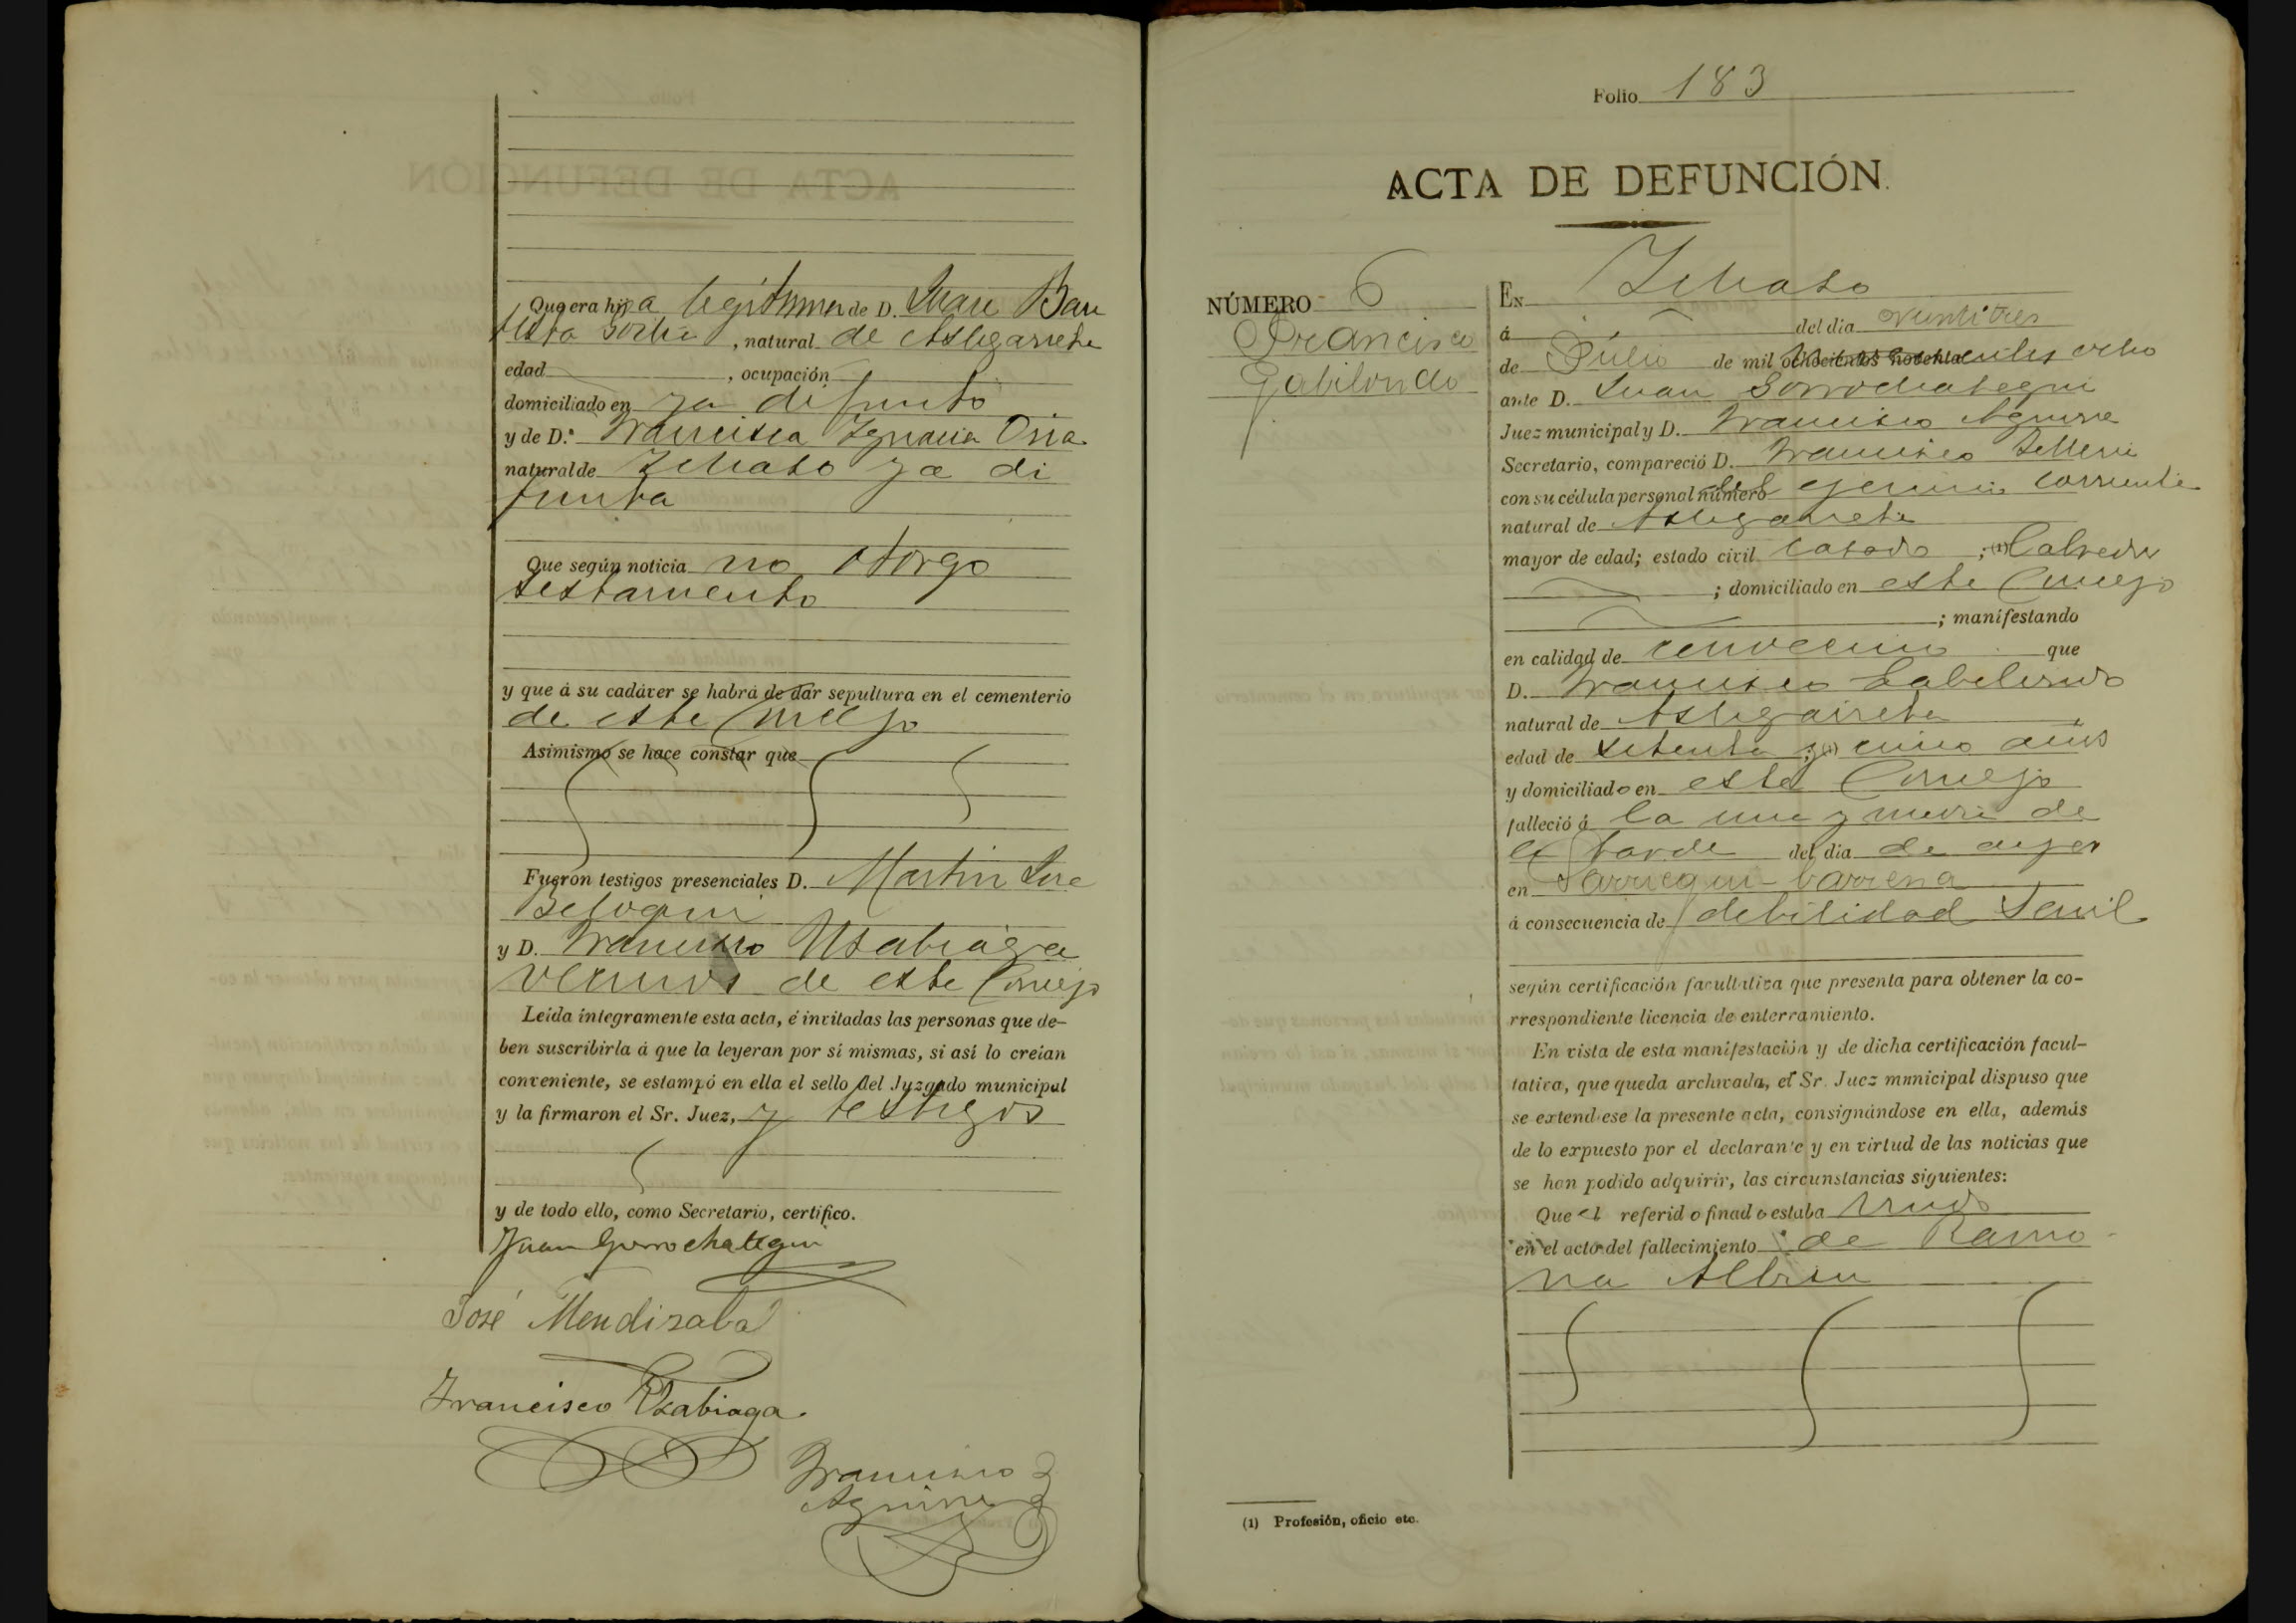 Que era hija legitima de D. Juan Bau
tista Sortu, natural de Astigarreta
edad , ocupación
domiciliado en ya difunto
y de D.ª Francisca Ignacia Oria
natural de Ichaso ya di
funta
Que según noticia no otorgo
testamento
y que á su cadáver se habrá de dar sepultura en el cementerio
de este Concejo
Asimismo se hace constar que
Fueron testigos presenciales D. Martin Jose
Beloqui
y D. Francisco Usabiaga
vecinos de este Concejo
Leída íntegramente esta acta, é invitadas las personas que de-
ben suscribirla á que la leyeran por sí mismas, si así lo creían
conveniente, se estampó en ella el sello del Juzgado municipal
y la firmaron el Sr. Juez, y testigos
y de todo ello, como Secretario, certifico.
Juan Gorrochategui
José Mendizabal
Francisco Usabiaga
Francisco
Aguirre
Folio 183
ACTA DE DEFUNCIÓN.
NÚMERO 6
Francisco
Gabilondo
En Ichaso
á del dia veintitres
de Julio de mil ochocientos noventa ocho
ante D. Juan Gorrochategui
Juez municipal y D. Francisco Aguirre
Secretario, compareció D. Francisco Telleria
con su cédula personal número del ejercicio corriente
natural de Astigarreta
mayor de edad; estado civil casado ; (1) Labrador
; domiciliado en este Concejo
; manifestando
en calidad de convecino que
D. Francisco Gabilondo
natural de Astigarreta
edad de setenta y cinco años ; (1)
y domiciliado en este Concejo
falleció á la una y media de
la tarde del dia de ayer
en Sarriegui-barrena
á consecuencia de debilidad senil
según certificación facultativa que presenta para obtener la co-
rrespondiente licencia de enterramiento.
En vista de esta manifestación y de dicha certificación facul-
tativa, que queda archivada, el Sr. Juez municipal dispuso que
se extendiese la presente acta, consignándose en ella, además
de lo expuesto por el declarante y en virtud de las noticias que
se han podido adquirir, las circunstancias siguientes:
Que el referido finado estaba viudo
en el acto del fallecimiento de Ramo
na Albisu
(1) Profesión, oficio etc.